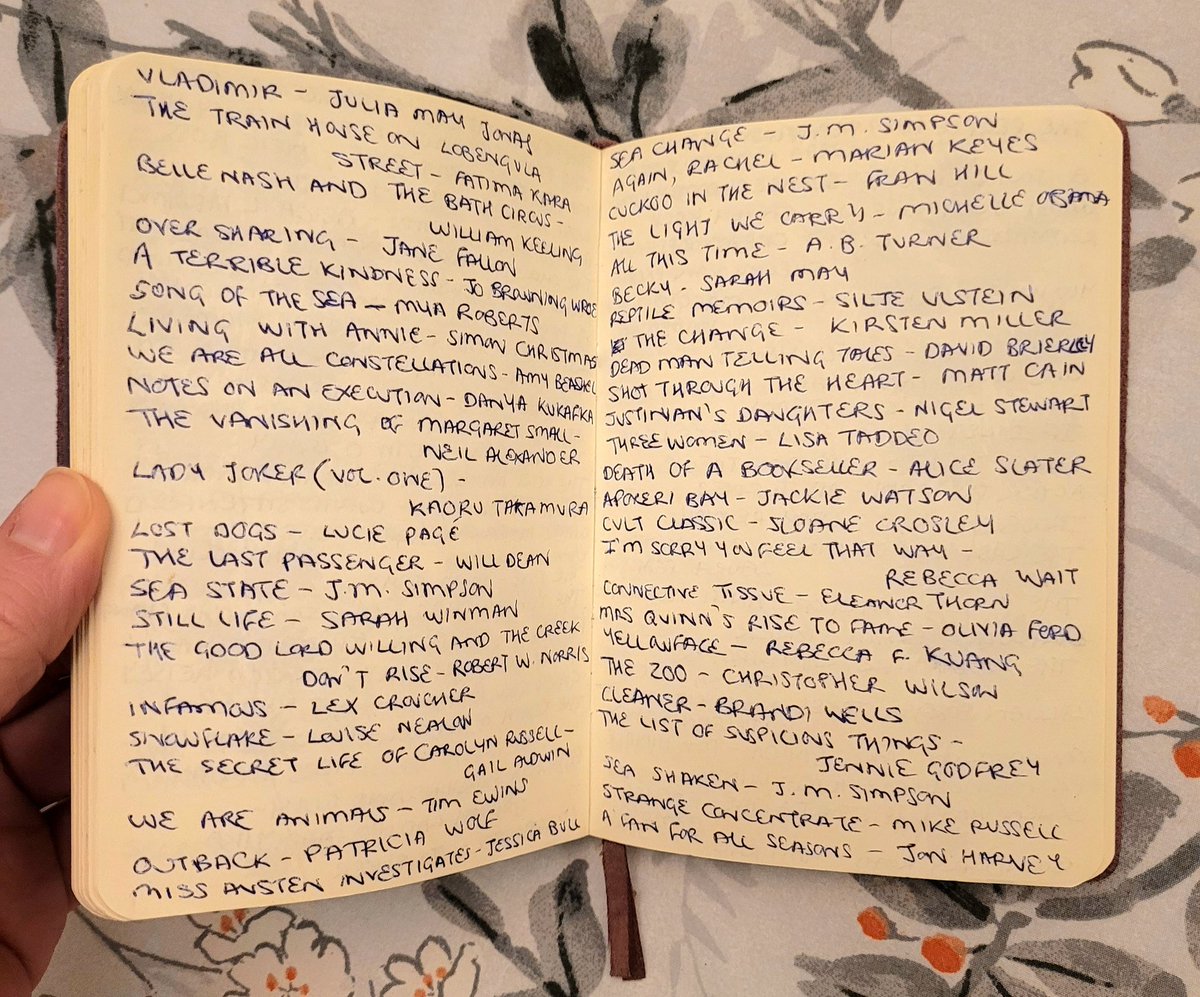 VLADIMIR - JULIA MAY JONAS
THE TRAIN HOUSE ON LOBENGULA
STREET - FATIMA KARA
BELLE NASH AND THE BATH CIRCUS -
WILLIAM KEELING
OVER SHARING - JANE FALLON
A TERRIBLE KINDNESS - JO BROWNING WROE
SONG OF THE SEA - MYA ROBERTS
LIVING WITH ANNIE - SIMON CHRISTMAS
WE ARE ALL CONSTELLATIONS - AMY BEASHEL
NOTES ON AN EXECUTION - DANYA KUKAFKA
THE VANISHING OF MARGARET SMALL -
NEIL ALEXANDER
LADY JOKER (VOL. ONE) -
KAORU TAKAMURA
LOST DOGS - LUCIE PAGÉ
THE LAST PASSENGER - WILL DEAN
SEA STATE - J.M. SIMPSON
STILL LIFE - SARAH WINMAN
THE GOOD LORD WILLING AND THE CREEK
DON'T RISE - ROBERT W. NORRIS
INFAMOUS - LEX CROUCHER
SNOWFLAKE - LOUISE NEALON
THE SECRET LIFE OF CAROLYN RUSSELL -
GAIL ALDWIN
WE ARE ANIMALS - TIM EWINS
OUTBACK - PATRICIA WOLF
MISS AUSTEN INVESTIGATES - JESSICA BULL
SEA CHANGE - J.M. SIMPSON
AGAIN, RACHEL - MARIAN KEYES
CUCKOO IN THE NEST - FRAN HILL
THE LIGHT WE CARRY - MICHELLE OBAMA
ALL THIS TIME - A.B. TURNER
BECKY - SARAH MAY
REPTILE MEMOIRS - SILJE ULSTEIN
THE CHANGE - KIRSTEN MILLER
DEAD MAN TELLING TALES - DAVID BRIERLEY
SHOT THROUGH THE HEART - MATT CAIN
JUSTINIAN'S DAUGHTERS - NIGEL STEWART
THREE WOMEN - LISA TADDEO
DEATH OF A BOOKSELLER - ALICE SLATER
APOXERI BAY - JACKIE WATSON
CULT CLASSIC - SLOANE CROSLEY
I'M SORRY YOU FEEL THAT WAY -
REBECCA WAIT
CONNECTIVE TISSUE - ELEANOR THORN
MRS QUINN'S RISE TO FAME - OLIVIA FORD
YELLOWFACE - REBECCA F. KUANG
THE ZOO - CHRISTOPHER WILSON
CLEANER - BRANDI WELLS
THE LIST OF SUSPICIOUS THINGS -
JENNIE GODFREY
SEA SHAKEN - J.M. SIMPSON
STRANGE CONCENTRATE - MIKE RUSSELL
A FAN FOR ALL SEASONS - JON HARVEY